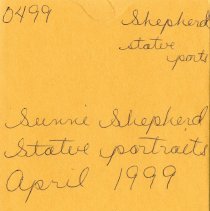 0499
Shepherd
stative
ports
Sunni Shepherd
Stative portraits
April 1999